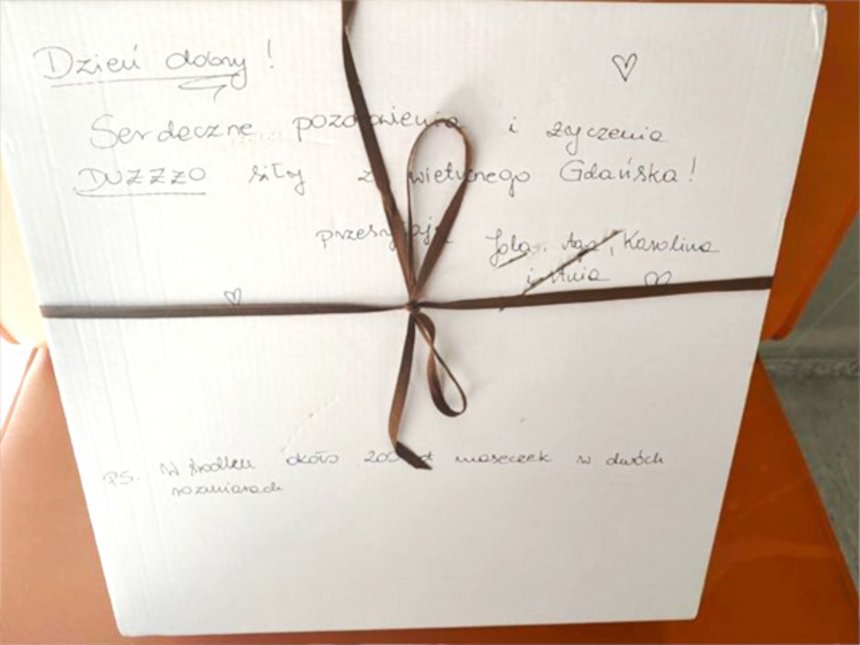 Dzień dobry!
Serdeczne pozdrowienia i życzenia
DUZZZO siły z wietrznego Gdańska!
przesyłają Jola, Aga, Karolina
i Ania
PS. W środku około 200 maseczek w dwóch
rozmiarach